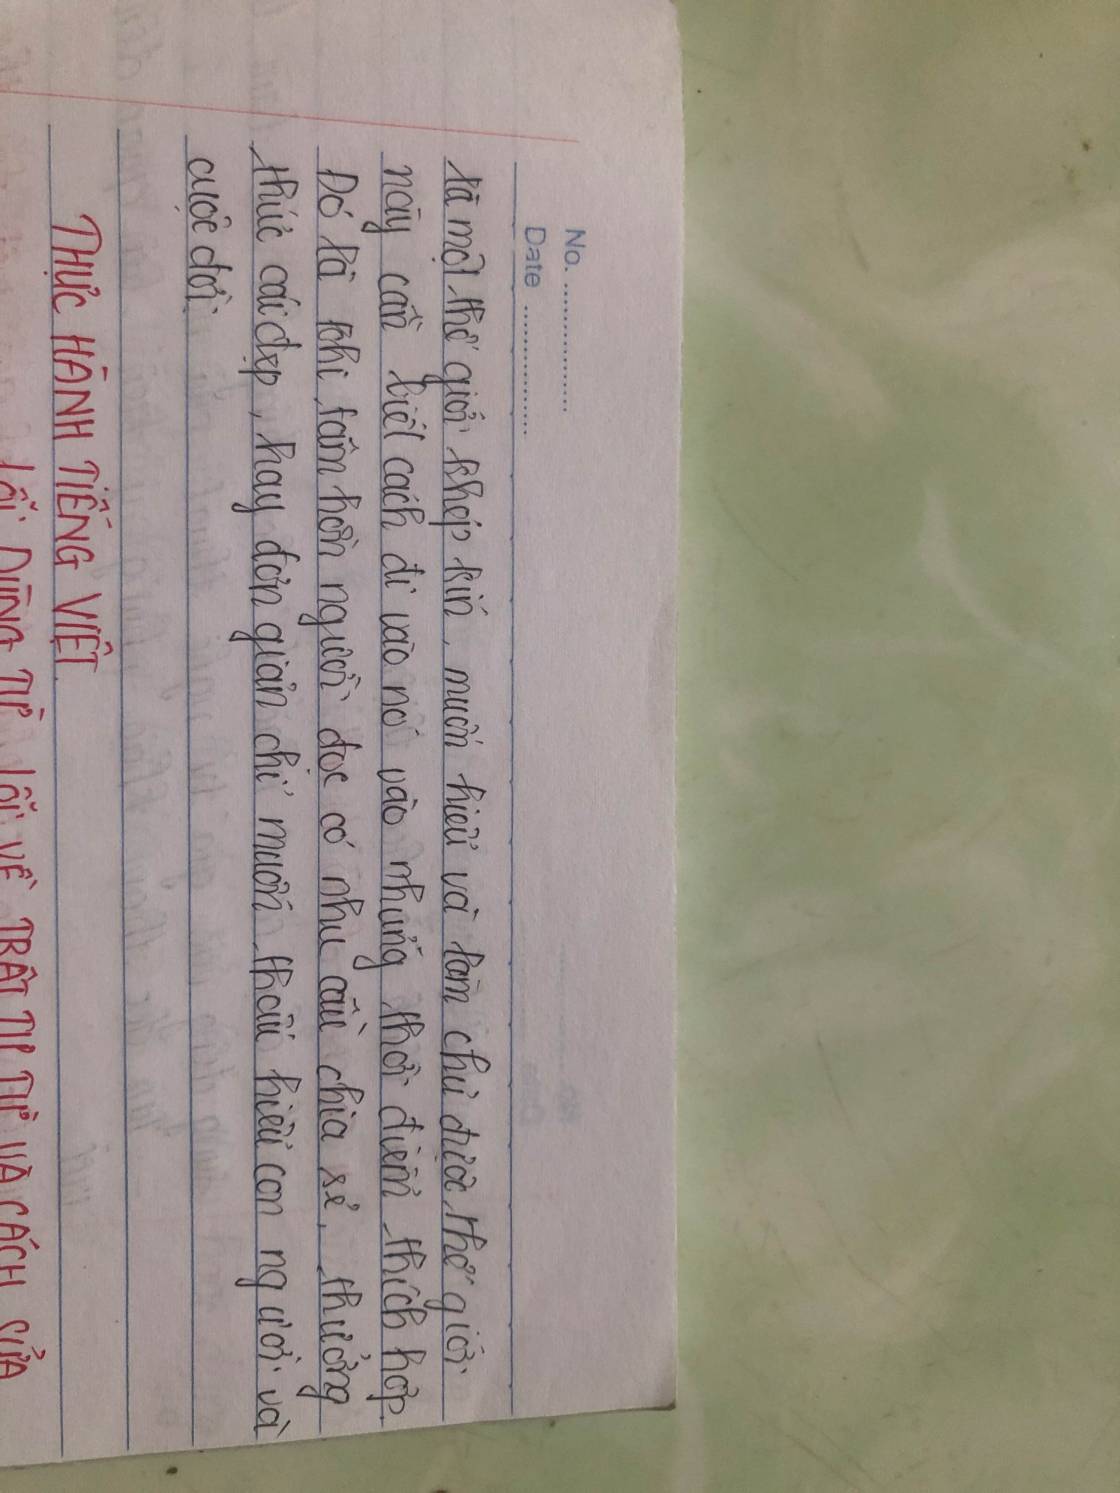 No. ................
Date ................
là một thế giới khép kín, muốn hiểu và làm chủ được thế giới
này cần biết cách đi vào nó vào những thời điểm thích hợp.
Đó là khi tâm hồn người đọc có nhu cầu chia sẻ, thưởng
thức cái đẹp, hay đơn giản chỉ muốn thấu hiểu con người và
cuộc đời.
THỰC HÀNH TIẾNG VIỆT
LỖI DÙNG TỪ LỖI VỀ TRẬT TỰ TỪ VÀ CÁCH SỬA